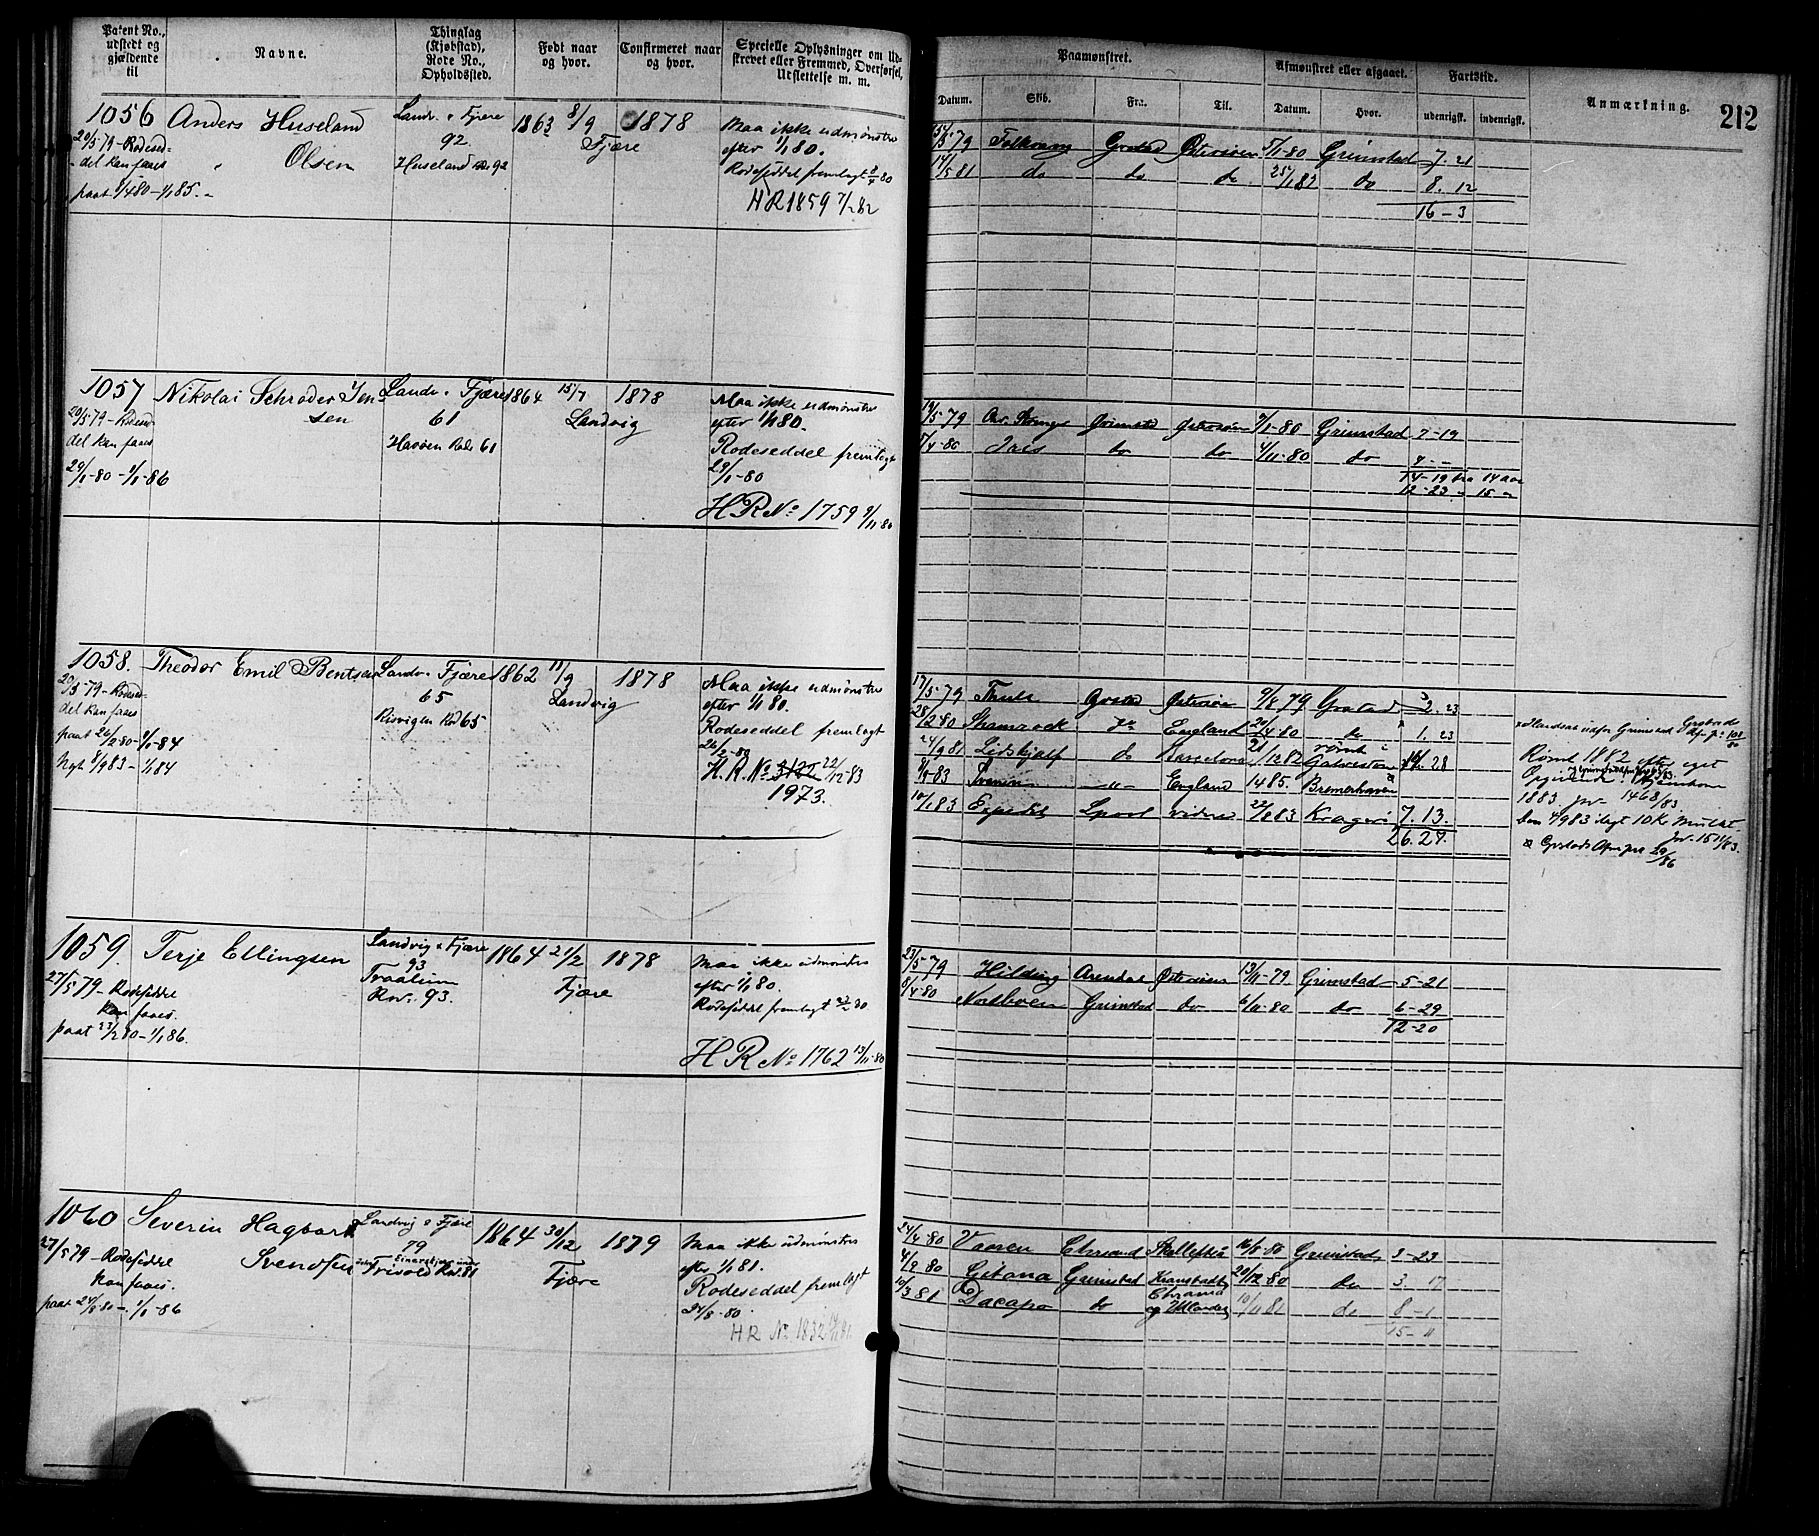 Patent No., udstedt og gjældende til
Navne.
Thinglag (Kjøbstad), Rode No., Opholdssted.
Født naar og hvor.
Confirmeret naar og hvor.
Specielle Oplysninger om Udskrevet eller Fremmed, Overførsel, Udslettelse m. m.
Paamønstret.
Datum.
Skib.
Fra.
Til.
Afmønstret eller afgaaet.
Datum.
Hvor.
Fartstid.
udenrigsk.
indenrigsk.
Anmærkning.
212
1056 Anders Huseland
Olsen
20/5 79 - Rodesed-
del kan faaes
paat 1/4 80 - 1/1 85. -
Landv. & Fjære
92
Huseland Rd 92
1863 8/9
1878
Fjære
Maa ikke udmønstres
efter 1/1 80.
Rodeseddel fremlagt
HR 1859 7/2 82
15/5 79 Grstad Østersøen 5/1 80 Grimstad 7. 21
14/5 81 do do do 25/1 82 do 8. 12
16 - 3
1057 Nikolai Schrøder Jen
sen
20/5 79 - Rodesed-
del kan faaes
29/1 - 80 - 1/1 - 86
Landv. & Fjære
61
Havøen Rode 61
1864 15/7
1878
Landvig
Maa ikke udmønstres
efter 1/1 80.
Rodeseddel fremlagt
29/1 - 80
HR No 1759 9/11 80
19/5 79 Grimstd Østersøen 9/1 - 80 Grimstad 7 - 19
7/4 - 80 Iris do do 4/11 - 80 do
14 - 19 fra 14 aar
12 - 23 " 15 "
1058. Theodor Emil Bentsen
20/5 79 - Rodesed-
del kan faaes
paat 26/2 80 - 1/1 - 84
Nyt 8/9 83 - 1/1 84
Landv. & Fjære
65
Risvigen Rod 65
1862 19/9
1878
Landvig
Maa ikke udmønstres
efter 1/1 80.
Rodeseddel fremlagt
26/2 - 80
H. R. No 22/12 83
1973.
17/5 79 Thule Grstad Østersøen 9/8 79 Grstad 2. 23
28/2 80 Shamrock do England 20/4 80 do 1. 23
24/9 81 Lidskjalf do Barcelona 21/12 82 rømt i
Galveston 14. 28
England 14 85. Bremerhaven
10/1 83 Expedit Lpool videre 22/8 83 Kragerø 7. 13.
26. 27.
Rømt 1882 efter eget
1883. Jnr. 1468/83.
10 Kr. Mulkt.
1059. Terje Ellingsen
27/5 79 - Rodesedde
kan faaes.
paat 23/2 80 - 1/1 86.
Landvig & Fjære
93
Rov. 93.
1864 21/2
1878
Fjære
Maa ikke udmønstres
efter 1/1 80.
Rodeseddel fremlagt 23/2 80
HR No 1762 13/11 - 80
23/5 79 Hilding Arendal Østersøen 13/11 - 79 Grimstad 5 - 21
8/4 - 80 Grimstad do 6/11 - 80 do 6 - 29
12 - 20
1060 Severin Hagbart
Svendsen
27/5 79 - Rodesedde
kan faaes.
paat 24/8 80 - 1/1 - 86
Landvig & Fjære
79
Trivold Rov. 81
1864 30/12
1879
Fjære
Maa ikke udmønstres
efter 1/1 81.
Rodeseddel fremlagt
24/8 - 80
HR No 1832
24/4 - 80 Chrsand 16/8 - 80 Grimstad 3 - 23
4/9 80 Gitana Grimstad Kronstadt 20/12 80 do 3. 17
10/3 81 Dacapo do Chrania
og Utlandet 10/11 81 do 8 - 1
15 - 11